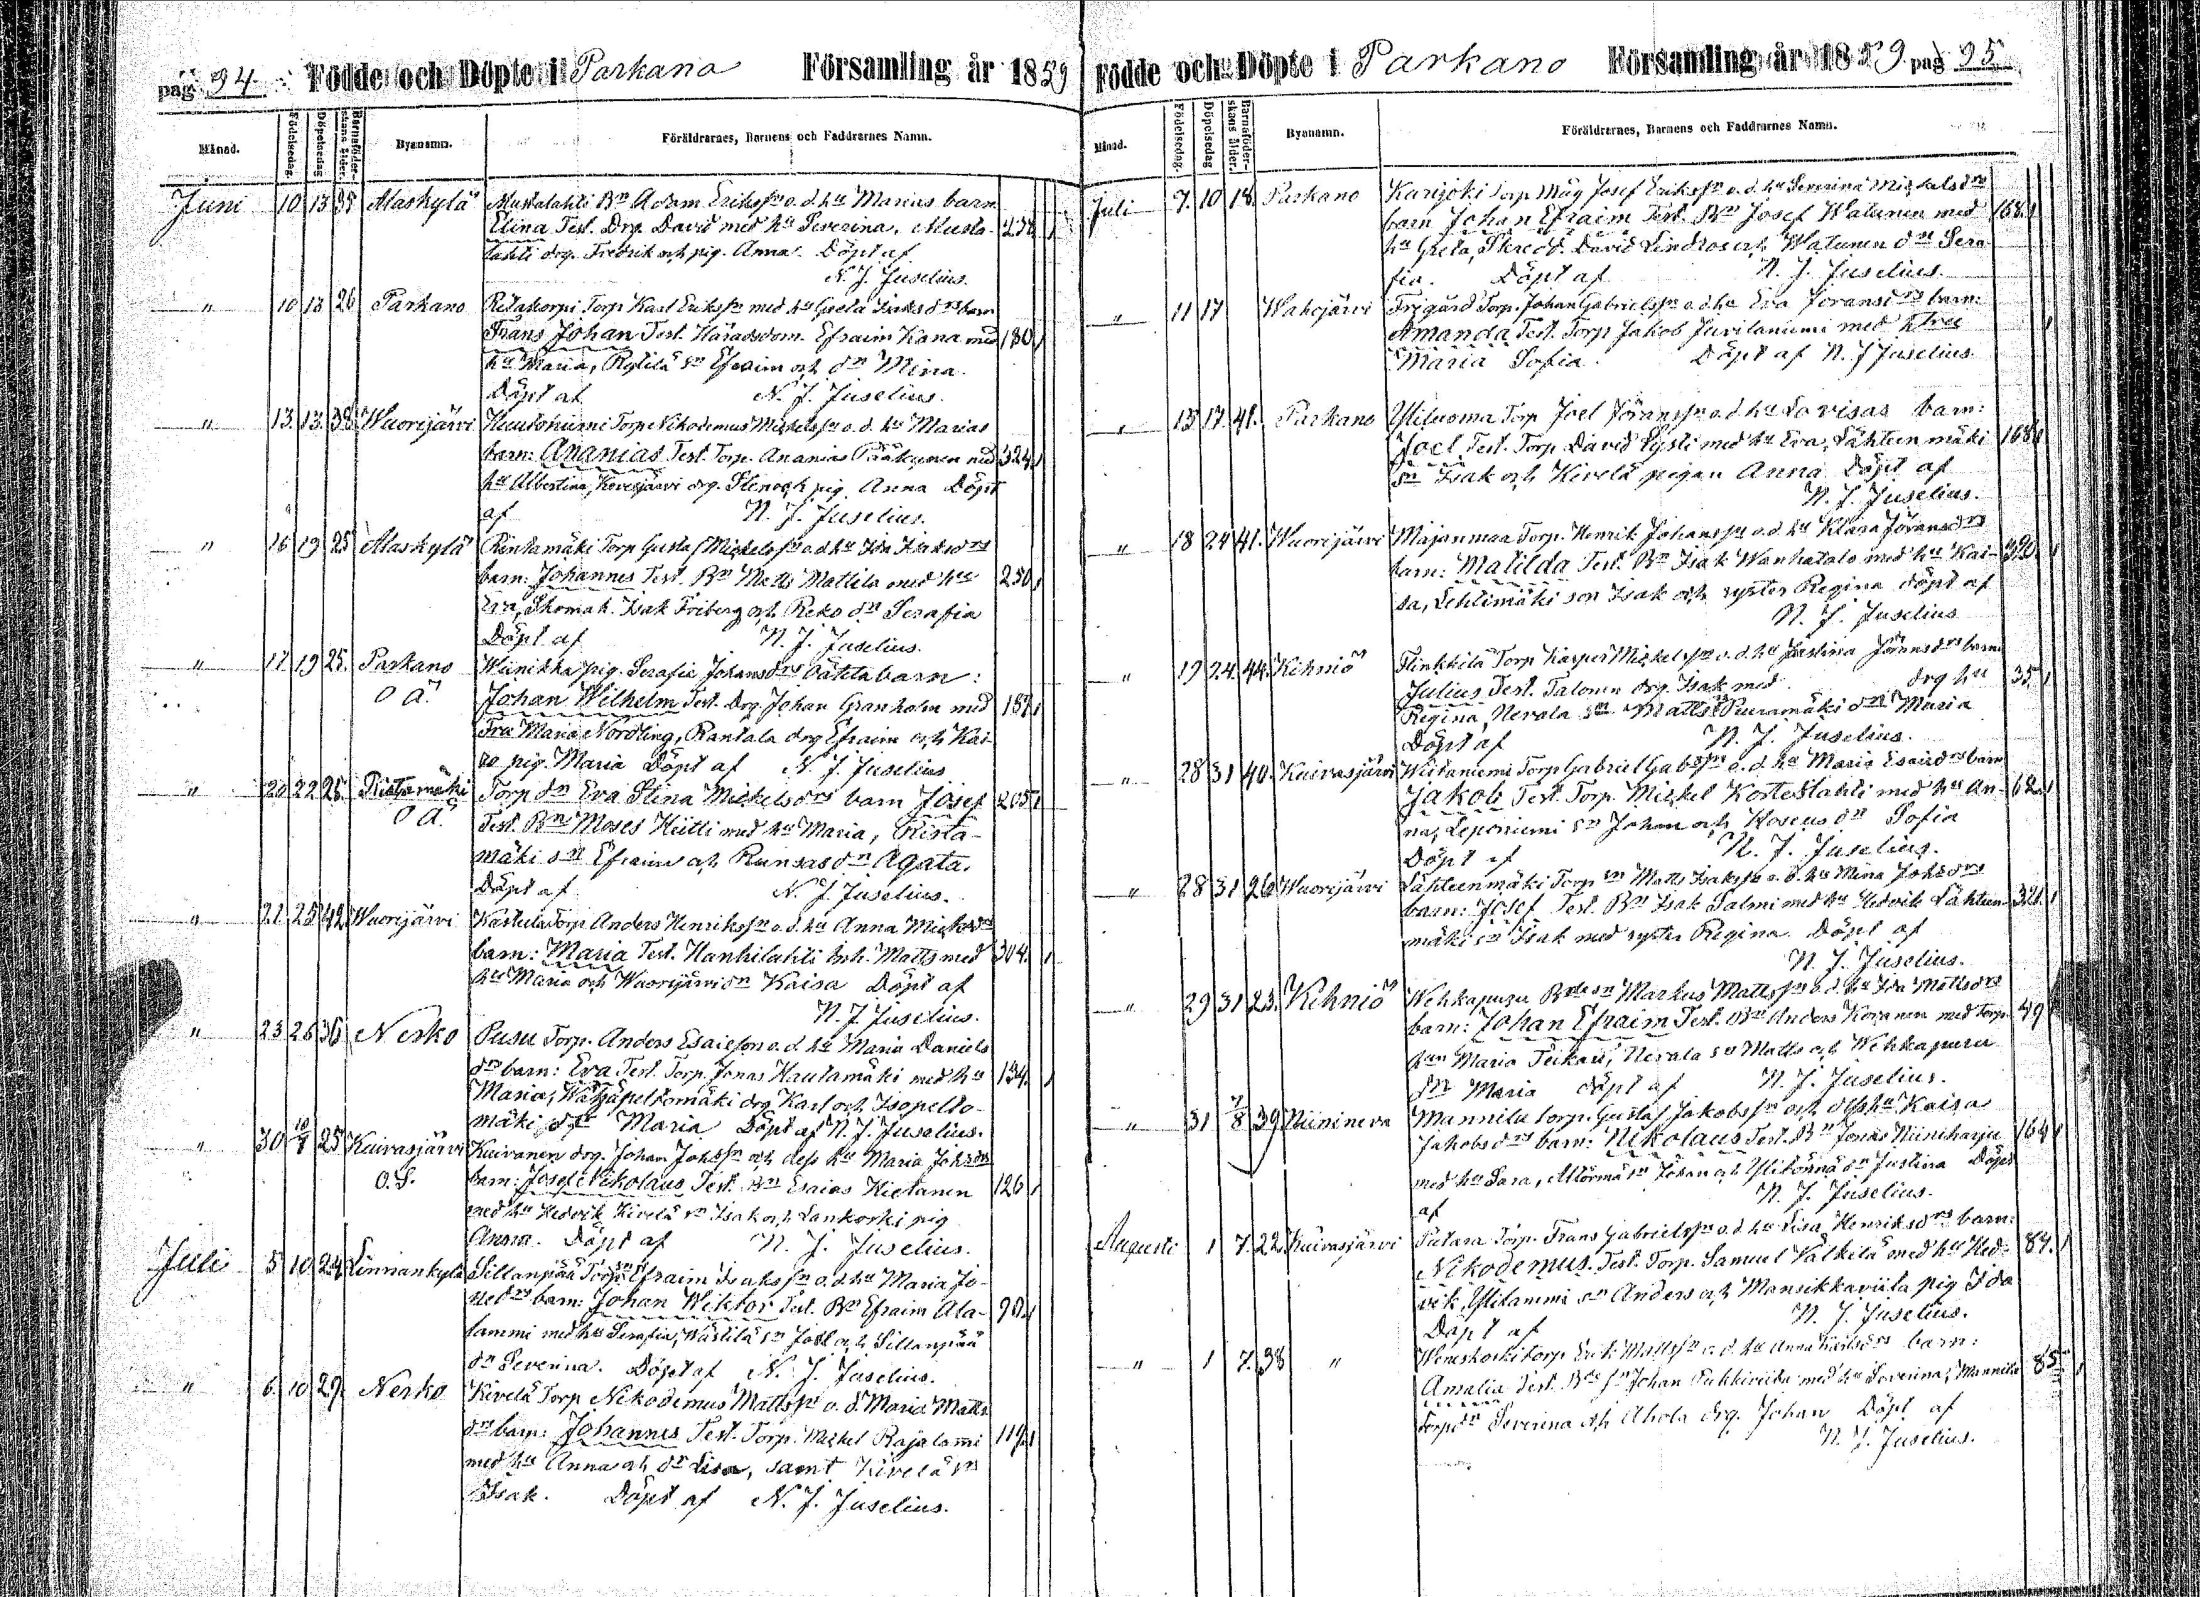 pag. 94. Födde och Döpte i Parkano Församling år 1859
Månad. Födelsedag. Döpelsedag Barnaföderskans ålder. Byanamn. Föräldrarnes, Barnens och Faddrarnes Namn.
Juni 10 13 35 Alaskylä Mustalahti Bn Adam Erikssn o. d. hu Marias barn
Elina Test. Drg. David med hu Severina, Musta- 238
lahti drg. Fredrik och pig. Anna. Döpt af
N. J. Juselius.
" 10 13 26 Parkano Ritakorpi Torp Karl Erikssn med hu Greta Isaksdrs barn
Frans Johan Test. Häradsdom. Efraim Kana med 180
hu Maria, sn Efraim och dn Mina.
Döpt af N. J. Juselius.
" 13 13 38 Wuorijärvi Torp Nikodemus Mickelssn o. d. hu Marias
barn: Ananias Test. Torp. Ananias med 324
hu Albertina, Kovesjärvi drg. Sten och pig. Anna Döpt
af N. J. Juselius.
" 16 19 25 Alaskylä Rintamäki Torp Gustaf Mickelssn o d hu Ida Isaksdrs
barn: Johannes Test. Bn Matts Mattila med hu 250
Eva, Skomak. Isak Friberg och Reko dn Serafia
Döpt af N. J. Juselius.
" 17 19 25. Parkano Wuinikka pig. Serafia Johansdrs oäkta barn:
O Ä. Johan Wilhelm Test. Drg Johan Granholm med 187
Fru Maria Nordling, Rantala drg Efraim och Kai-
ro pig. Maria Döpt af N. J. Juselius
" 20 22 25. Ristamäki Torp dn Eva Stina Mickelsdrs barn Josef 205
O Ä. Test. Bn Moses Hutti med hu Maria, Rista-
mäki sn Efraim och Runsas dn Agata.
Döpt af N. J. Juselius.
" 22 25 42 Wuorijärvi Kastula Torp Anders Henrikssn o. d. hu Anna Mickelsdrs
barn: Maria Test. Hanhilahti Inh. Matts med 304.
hu Maria och Wuorijärvi dn Kaisa Döpt af
N. J. Juselius.
" 23 26 36 Nerko Pusu Torp. Anders Esaieson o. d. hu Maria Daniels
drs barn: Eva Test. Torp. Jonas Hautamäki med hu 134.
Maria, drg Karl och Isopelto-
mäki dn Maria Döpt af N. J. Juselius.
" 30 10/7 25 Kuivasjärvi Kuivanen drg. Johan Johssn och dess hu Maria Johsdrs
O. S. barn: Josef Nikolaus Test. Bn Esaias Kietanen 126
med hu Hedvik Kivelä sn Isak och Lankoski pig
Anna. Döpt af N. J. Juselius.
Juli 5 10 24 Linnankylä Sillanpää Torp sn Efraim Isakssn o. d. hu Maria Jo-
nedrs barn: Johan Wiktor Test. Bn Efraim Ala- 90
lammi med hu Serafia, Wästilä sn Joel och Sillanpää
dn Severina. Döpt af N. J. Juselius.
" 6. 10 29. Nerko Kivelä Torp Nikodemus Mattssn o. d. Maria Matts
drs barn: Johannes Test. Torp. Mickel Rajalami 119
med hu Anna och dn Lisa, samt Kivelä sn
Isak. Döpt af N. J. Juselius.
Födde och Döpte i Parkano Församling år 1859. pag 95
Månad. Födelsedag. Döpelsedag Barnaföderskans ålder. Byanamn. Föräldrarnes, Barnens och Faddrarnes Namn.
Juli 7. 10 18. Parkano Karijoki Torp Måg Josef Erikssn o. d. hu Severina Mickelsdrs
barn Johan Efraim Test. Bn Josef Watunen med 168
hu Greta, Skredd. David Lindroos och Watunen dn Sera
fia. Döpt af N. J. Juselius.
" 11 17 Wahojärvi Frigård Torp. Johan Gabrielssn o d hu Eva Göransdrs barn:
Amanda Test. Torp Jakob Juvilaniemi med Htru
Maria Sofia. Döpt af N. J Juselius
" 13 17. 41. Parkano Yliluoma Torp Joel Göranssn o. d. hu Lovisas barn:
Joel Test. Torp David Sysli med hu Eva, Lähteenmäki 168
sn Isak och Kivelä pigan Anna Döpt af
N. J. Juselius.
" 18 24 41. Wuorijärvi Majanmaa Torp. Henrik Johanssn o. d. hu Klara Göransdrs
barn: Matilda Test. Bn Isak Wanhatalo med hu Kai- 320
sa, Lehtimäki son Isak och syster Regina döpt af
N. J. Juselius
" 19 24. 44. Kihniö Flinkkilä Torp Kasper Mickelssn o. d. hu Justina Göransdrs barn
Julius Test. Talonen drg. Isak med drg hu 35.
Regina, Nevala sn Matts Peuramäki dn Maria
Döpt af N. J. Juselius.
" 28 31 40. Kuivasjärvi Wiitaniemi Torp Gabriel Gabssn o. d. hu Maria Esaiedrs barn
Jakob Test. Torp. Mickel Kortelahti med hu An- 62
na, Leponiemi sn Johan och Koskus dn Sofia
Döpt af N. J. Juselius.
" 28 31 26 Wuorijärvi Lähteenmäki Torp sn Matts Isakssn o. d. hu Mina Johsdrs
barn: Josef Test. Bn Isak Salmi med hu Hedvik Lähteen- 321
mäki sn Isak med syster Regina. Döpt af
N. J. Juselius.
" 29 31 23. Kihniö Wehkapuru Bdesn Markus Mattssn o. d. hu Ida Mattsdrs
barn: Johan Efraim Test. Bn Anders Koranen med Torp. 49
hun Maria Teikari, Nevala sn Matts och Wehkapuru
dn Maria döpt af N. J. Juselius.
" 31 7/8 39 Niinineva Mannila Torp. Gustaf Jakobssn och dess hu Kaisa
Jakobsdrs barn: Nikolaus Test. Bn Jonas Niiniharju 164
med hu Sara, Altörmä sn Johan och Ylitörmä dn Justina Döpt
af N. J. Juselius.
Augusti 1 7. 22. Kuivasjärvi Putara Torp. Frans Gabrielssn o. d. hu Lisa Henriksdrs barn:
Nikodemus. Test. Torp. Samuel Välkilä med hu Hed- 84.
vik, Ylilammi sn Anders och Mansikkaviita pig Ida
Döpt af N. J. Juselius.
" 1 7. 38 " Wemeskoski Torp Erik Mattssn o. d. hu Anna Karlsdrs barn:
Amalia Test. Bde sn Johan Pukkiviida med hu Severina, Mannila 85
Torpdn Severina och Ahola drg. Johan Döpt af
N. J. Juselius.